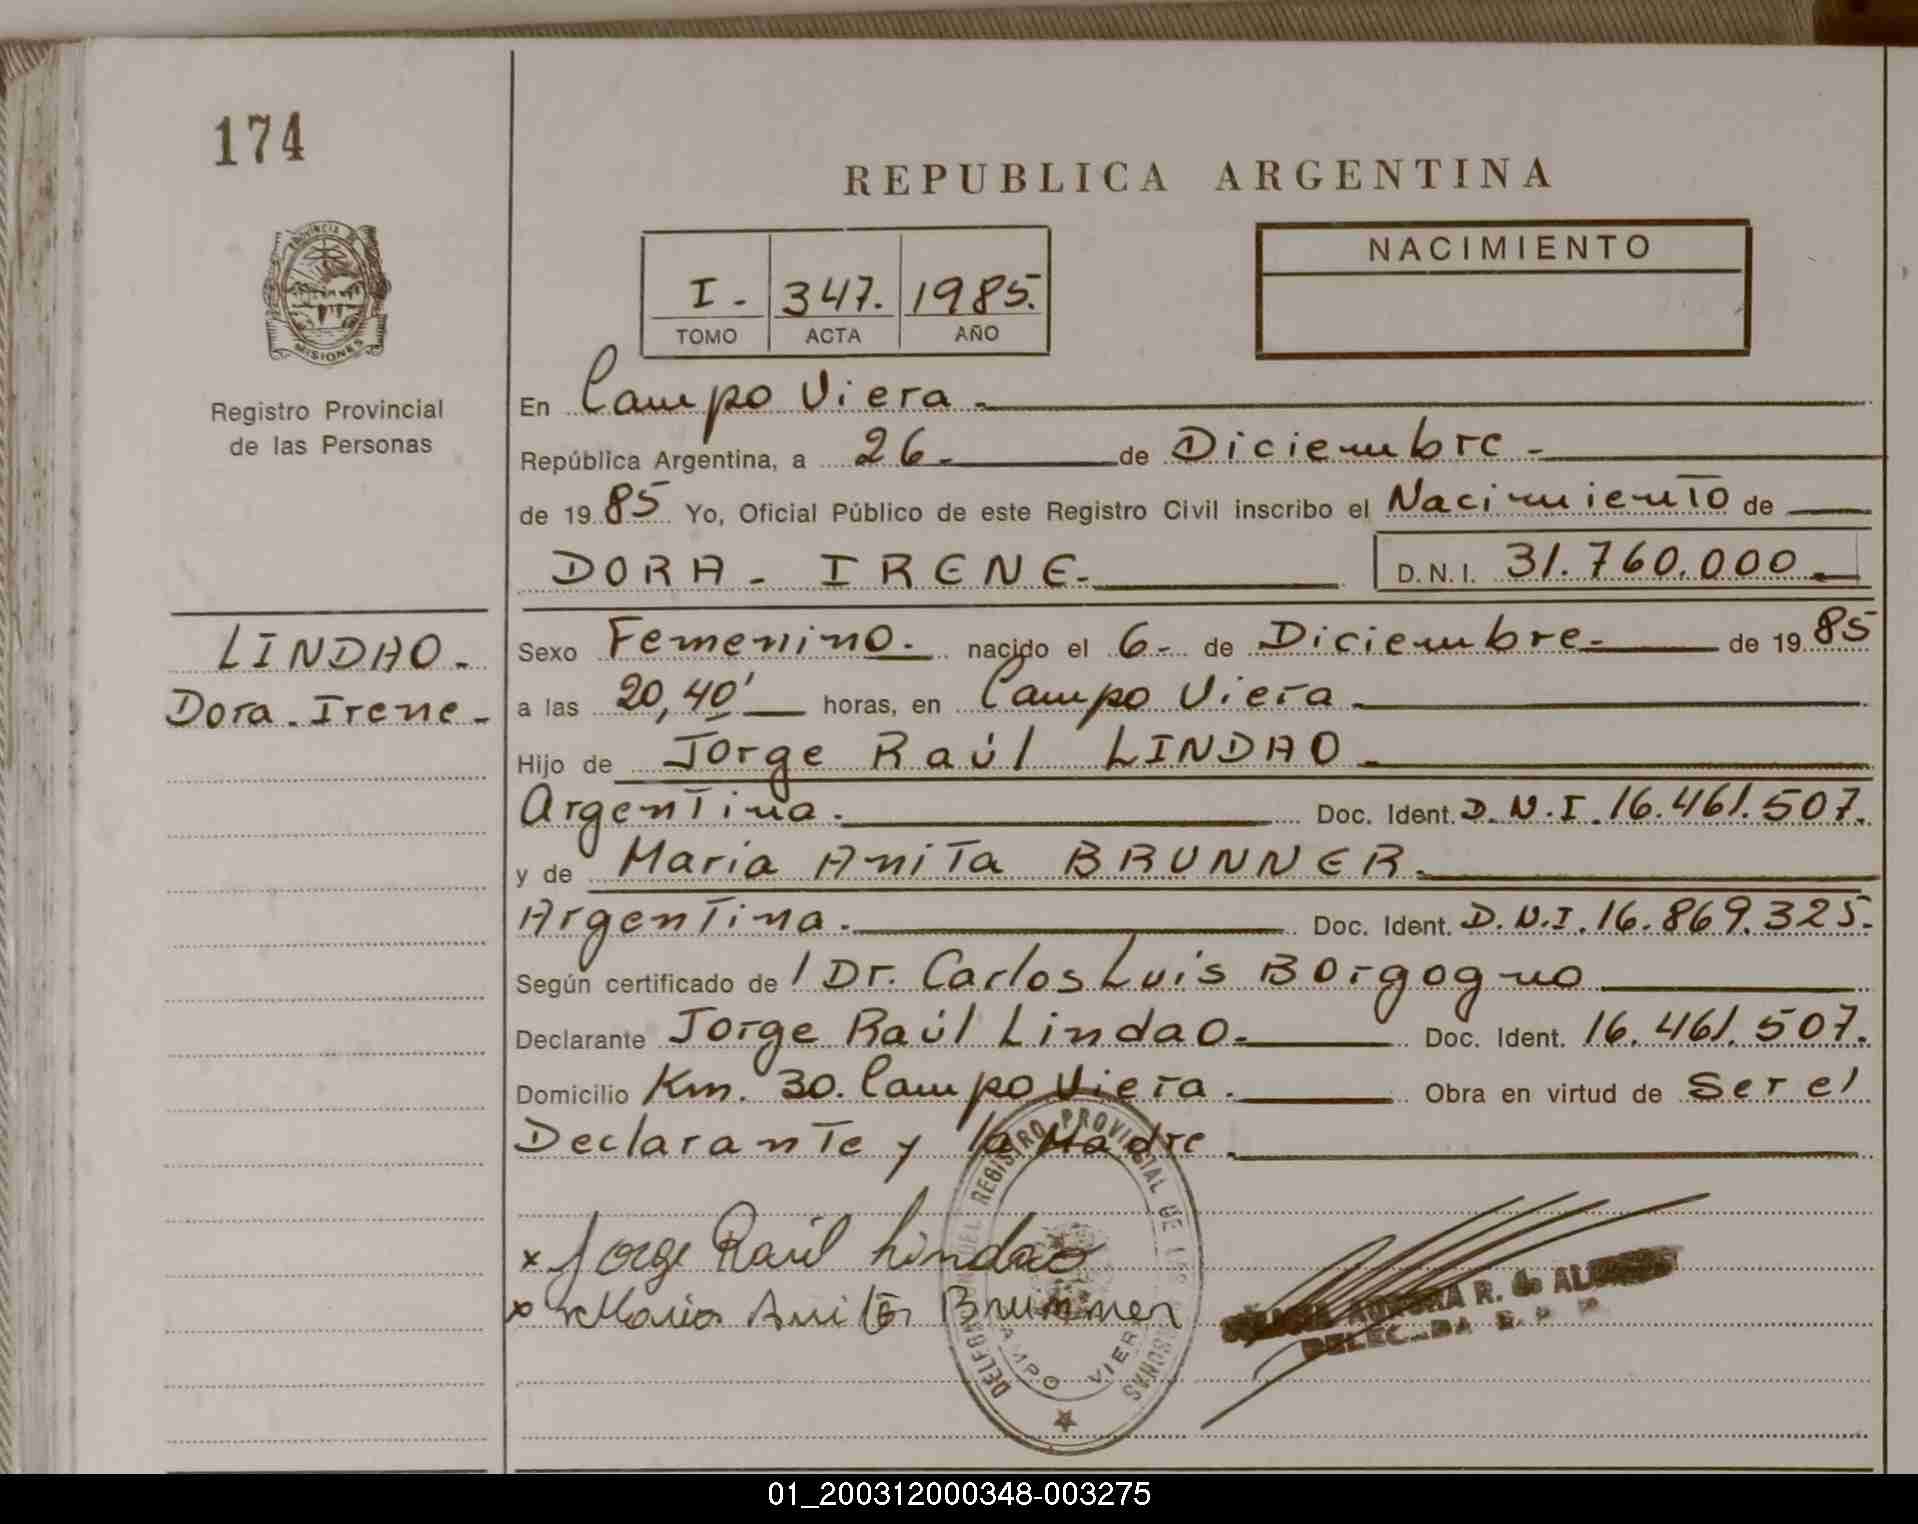 174
REPUBLICA ARGENTINA
PROVINCIA DE
MISIONES
Registro Provincial
de las Personas
I.- 347. 1985.
TOMO ACTA AÑO
NACIMIENTO
En Campo Viera.-
República Argentina, a 26.- de Diciembre.-
de 1985 Yo, Oficial Público de este Registro Civil inscribo el Nacimiento de
DORA - IRENE.- D.N.I. 31.760.000.-
LINDAO.-
Dora.Irene.-
Sexo Femenino.- nacido el 6.- de Diciembre.- de 1985
a las 20,40' horas, en Campo Viera.-
Hijo de Jorge Raúl LINDAO.-
Argentina.- Doc. Ident. D.N.I. 16.461.507.
y de Maria Anita BRUNNER.-
Argentina.- Doc. Ident. D.N.I. 16.869.325.-
Según certificado de / Dr. Carlos Luis Borgogno
Declarante Jorge Raúl Lindao.- Doc. Ident. 16.461.507.
Domicilio Km. 30. Campo Viera.- Obra en virtud de Ser el
Declarante y la Madre.-
x Jorge Raúl Lindao
x Maria Anita Brunner
DELEGACION DEL REGISTRO PROVINCIAL DE LAS PERSONAS
CAMPO VIERA
AURORA R. de
DELEGADA R. P. P.
01_200312000348-003275